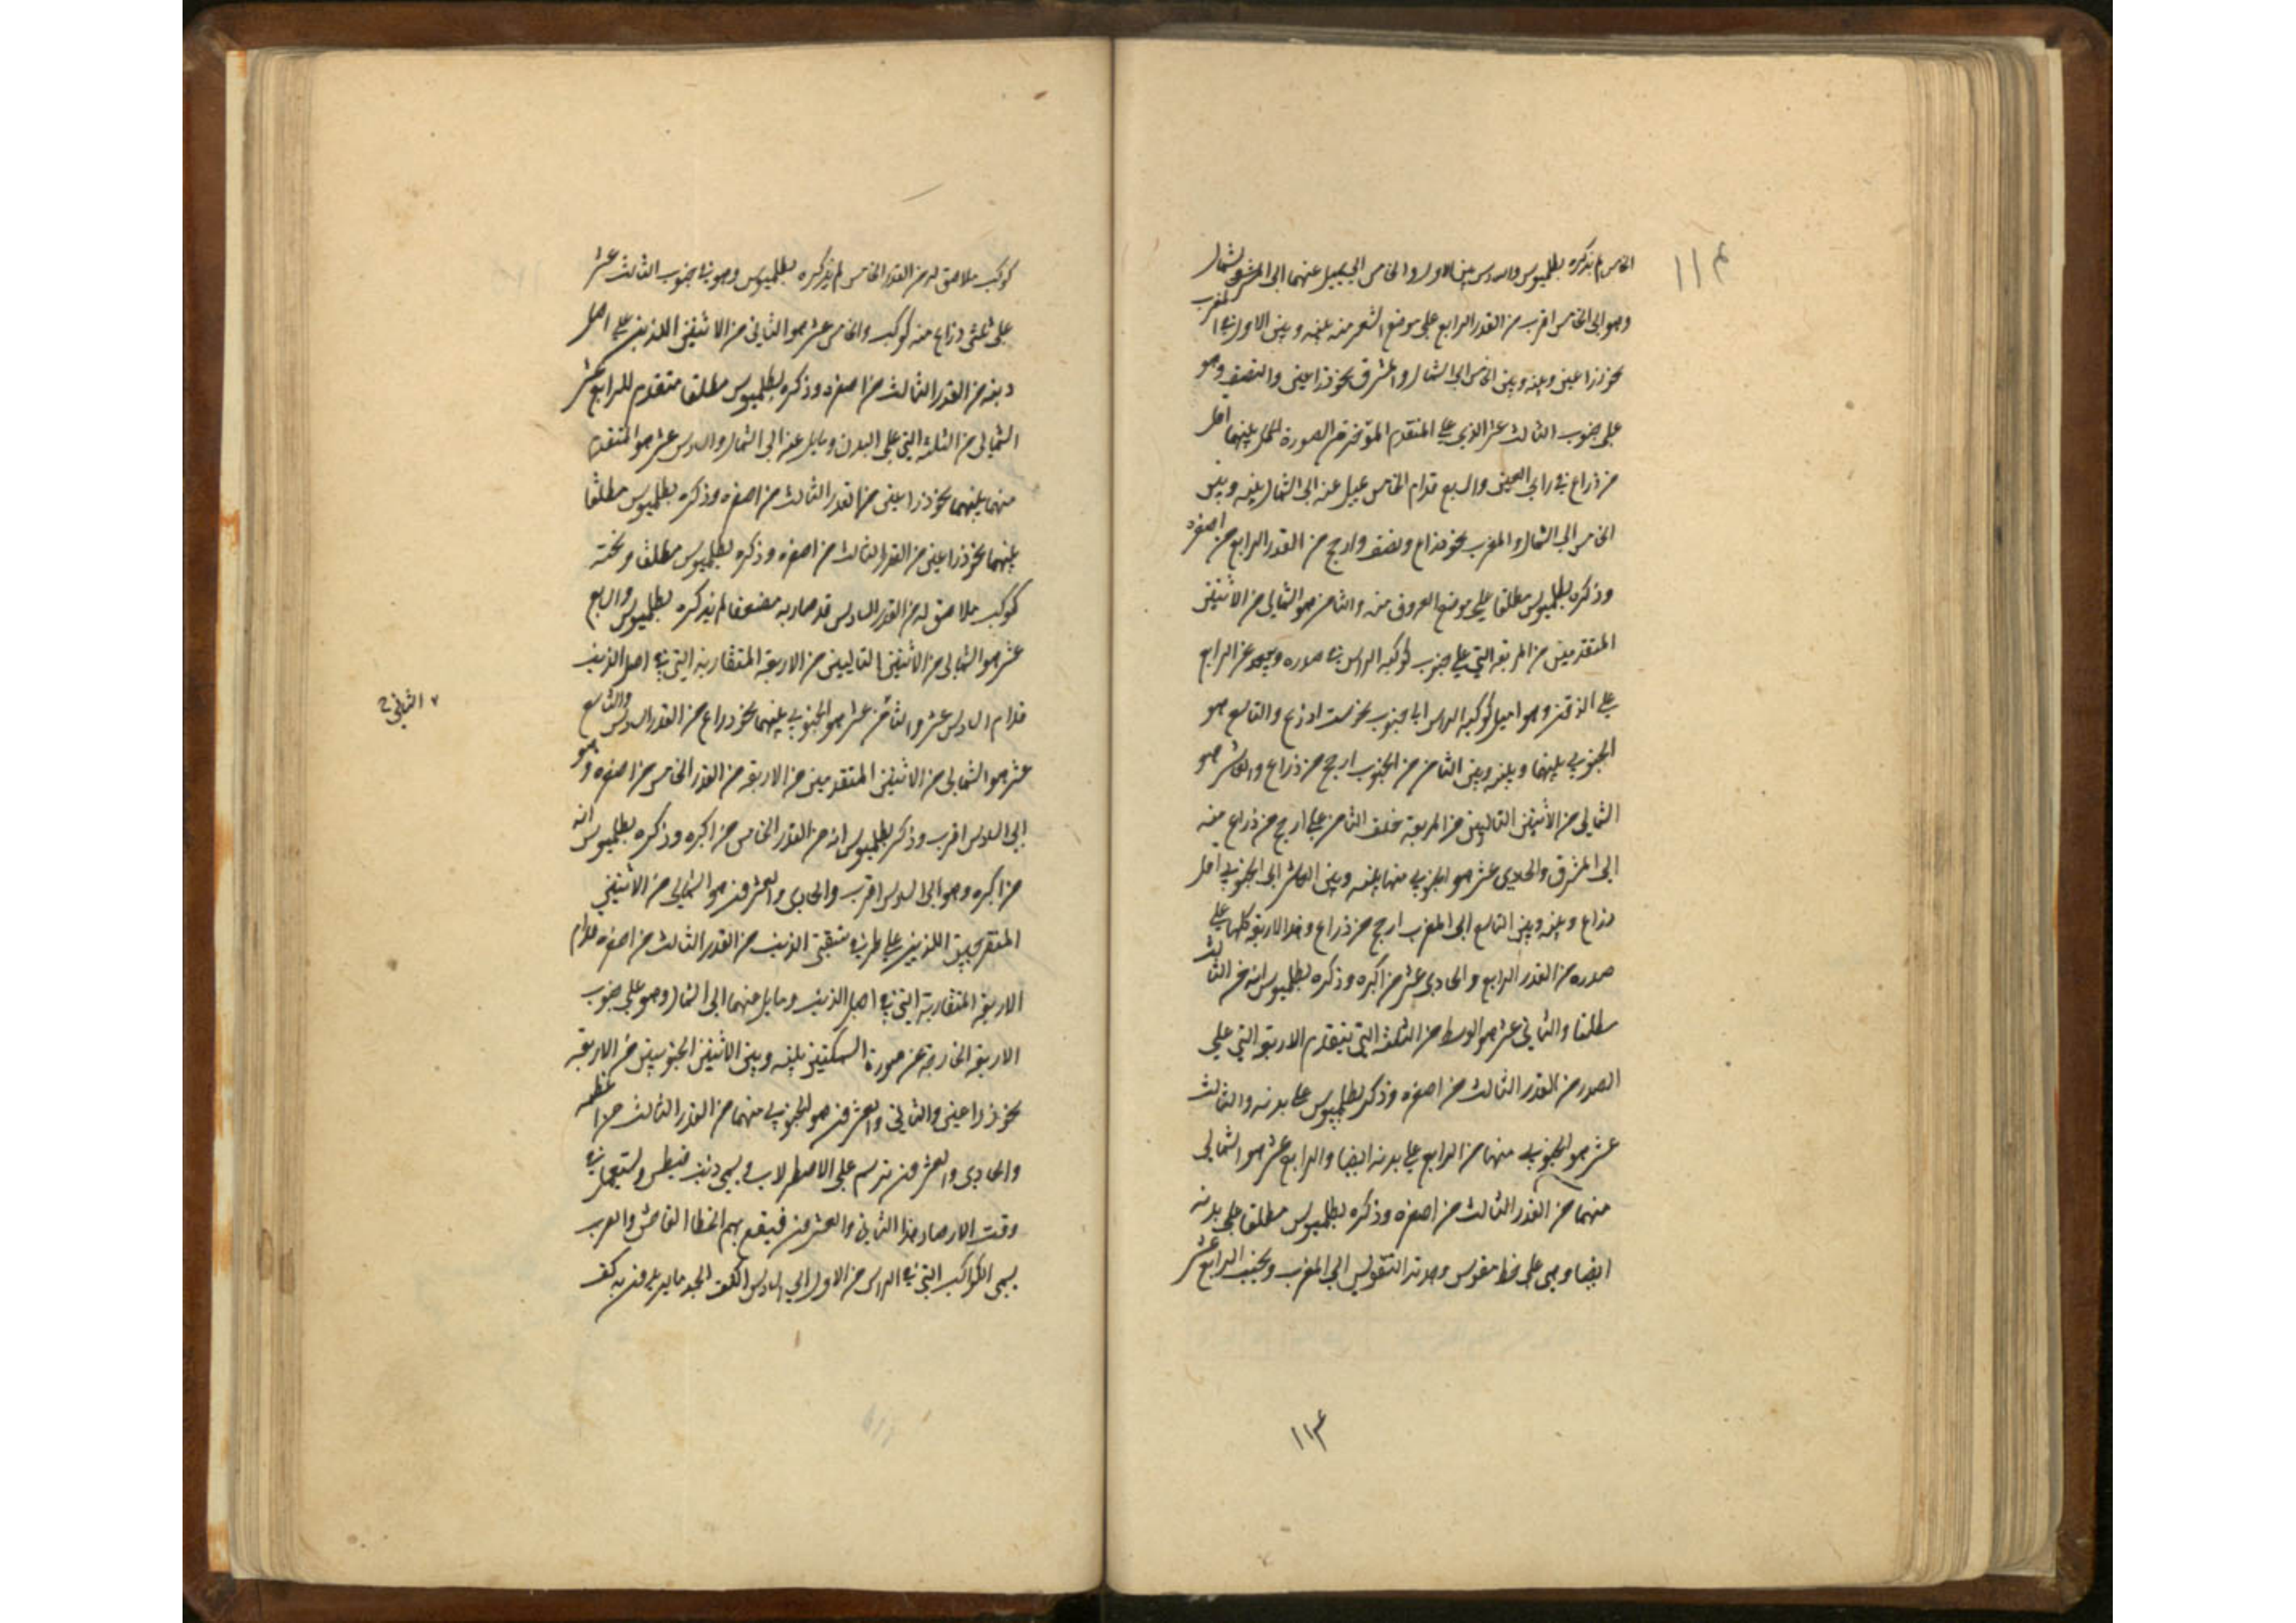 ١١٤
الخامس لم يذكره بطلميوس والسادس بين الاول والخامس الى يميل عنهما الى المشرق والشمال
وهو الى الخامس اقرب من القدر الرابع على موضع الشعر منه بينه وبين الاول في المغرب
نحو ذراعين وبينه وبين الخامس الى الشمال والمشرق نحو ذراعين والنصف وهو
على جنوب الثالث عشر الذي على المتقدم المؤخر من الصورة للحمل بينهما اقل
من ذراع في راي العين والسابع قدام الخامس يميل عنه الى الشمال بينه وبين
الخامس الى الشمال والمغرب نحو ذراع ونصف وارجح من القدر الرابع من اصغره
وذكره بطلميوس مطلقا على موضع العروف منه والثامن هو الشمالي من الاثنين
المتقدمين من المربعة التي على جنوب كوكبه الراس في صدره وبعده عن الرابع
على الذقن وهو اميل كوكبه الراس الى جنوب نحو ست اذرع والتاسع هو
الجنوبي بينهما وبينه وبين الثامن من الجنوب ارجح من ذراع والعاشر هو
الشمالي من الاثنين التاليين من المربعة خلف الثامن على ارجح من ذراع منه
الى المشرق والحادي عشر هو الجنوبي منهما بينه وبين العاشر الى الجنوب اقل
ذراع وبينه وبين التاسع الى المغرب ارجح من ذراع وهذا الاربعة كلها على
صدره من القدر الرابع والحادي عشر من اكبره وذكره بطلميوس انه من الثالث
مطلقا والثاني عشر هو الوسط من الثلثة التي يتقدم الاربعة التي على
الصدر من القدر الثالث من اصغره وذكر بطلميوس على بدنه والثالث
عشر هو الجنوبي منهما من الرابع على بدنه ايضا والرابع عشر هو الشمالي
منهما من القدر الثالث من اصغره وذكره بطلميوس مطلقا على بدنه
ايضا وهي على خط مقوس وحدته التقويس الى المغرب وبجنب الرابع عشر
١١٣
كوكب ملاصق له من القدر الخامس لم يذكره بطلميوس وهو في جنوب الثالث عشر
على ثلثي ذراع منه كوكب والخامس عشر هو الثاني من الاثنين اللذين على اصل
ذنبه من القدر الثالث من اصغره وذكره بطلميوس مطلقا متقدم للرابع عشر
الشمالي من الثلثة التي على البدن ومايل عنه الى الشمال والسادس عشر هو المتقدم
منهما بينهما نحو ذراعين من القدر الثالث من اصغره وذكره بطلميوس مطلقا
بينهما نحو ذراعين من القدر الثالث من اصغره وذكره بطلميوس مطلقا وتحته
كوكب ملاصق له من القدر السادس قد صار به مضعفا لم يذكره بطلميوس والسابع
عشر هو الشمالي من الاثنين التاليين من الاربعة المتقاربة التي في اصل الذنب
قدام السادس عشر والثامن عشر هو الجنوبي بينهما نحو ذراع من القدر السادس والتاسع
الثاني
عشر هو الشمالي من الاثنين المتقدمين من الاربعة من القدر الخامس من اصغره وهو
الى السادس اقرب وذكر بطلميوس انه من القدر الخامس من اكبره وذكره بطلميوس انه
من اكبره وهو الى السادس اقرب والحادي والعشرون هو الشمالي من الاثنين
اللذين على طرف شعبتي الذنب من القدر الثالث من اصغره قدام
الاربعة المتقاربة التي في اصل الذنب ومايل منهما الى الشمال وهو على جنوب
الاربعة الخارجة عن صورة السمكتين بينه وبين الاثنين الجنوبيين من الاربعة
نحو ذراعين والثاني والعشرون هو الجنوبي منهما من القدر الثالث من اعظمه
والحادي والعشرون ترسم على الاصطرلاب ويسمى ذنب قيطس ويستعمل في
وقت الارصاد هذا الثاني والعشرون فيقع بهم الخطا الفاحش والعرب
يسمي الكواكب التي في الراس من الاول الى السادس الكف الجذما يريدون به كف